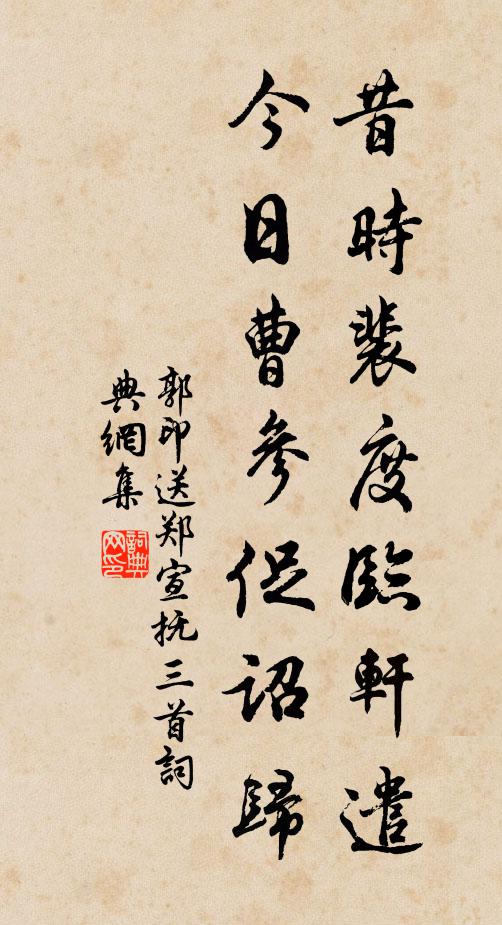 昔時裴度臨軒遣
今日曹參促詔歸
郭印送郑宣抚三首詞
典網集
詞典網印